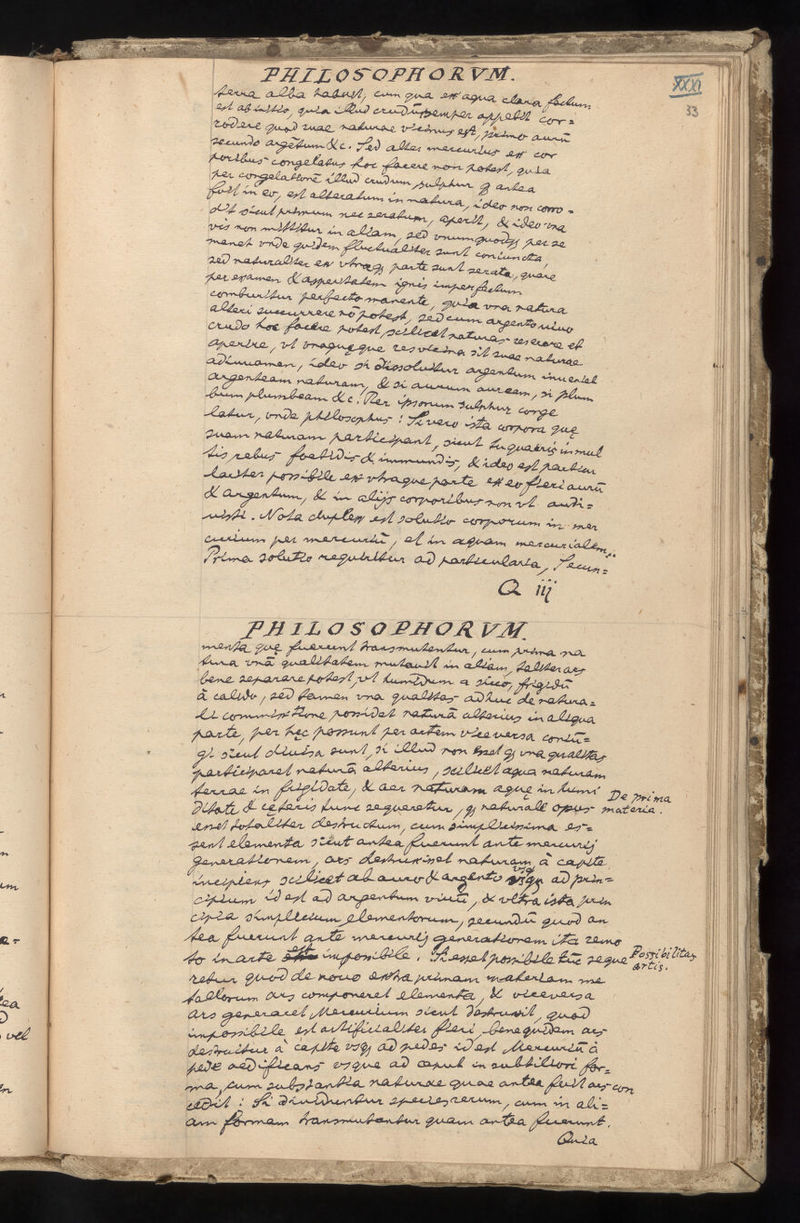 PHILOSOPHORVM.
XXXI
33
terra alba habuit, cum qua ex aqua clara factum
est ab initio, quia illud crudũ semper appetit cor=
rodere quod suae naturae vicinus est, primo aurũ
secundo argẽtum &c. Sed alter mercurius ex cor
poribus congelatus hoc facere non potest, quia
per congelationẽ illud crudum sulphur ꝙ antea
fuit in eo, est alteratum in natura, ideo non corro=
dit sicut primum nec seratum, aperit, & ideo vna
vis non mittitur in aliam, sed vnumquodqꝫ per se
manet vnde quidem fluctualiter sunt coniuncta
sed naturaliter ex vtraqꝫ parte sunt serata, quare
per examen & asperitatem ignis imperfectum
comburitur perfecto manente, quia vna natura
alteri succurrere nõ potest, sed cum argento viuo
crudo hoc facere potest, scilicet naturas reserare et
aperire, vt vnaquęque res vicina sit suae naturae
adiuuamen, ideo si dissoluitur argentum inueniet
argenteam naturam, & si aurum auream, si plum
bum plumbeam &c. Per ipsorum sulphur conge
latur, vnde philosophus: Si vero ista corpora quę
suam naturam participant, sicut in mul
tis rebus foetidis & immundis, & ideo est particu
lariter possibile ex vtraque parte ex eo fieri aurũ
& argentum, & in alijs corporibus non vt audi=
uisti. Nota duplex est solutio corporum in mer
curium per mercuriũ, et in aquam mercurialem,
Prima solutio requiritur ad particularia, Secun=
Q iij
PHILOSOPHORVM.
menta quę fuerunt transmutentur, cum prima na
tura vnã qualitatem mutauit in aliam, taliter ars
bene separare potest, vt humidum a sicco, frigidũ
à calido, sed tamen vna qualitas adhuc de natura=
li commixtione possidet naturã alterius in aliqua
parte, per hęc possunt per artem viceversa coniũ=
gi sicut diuisa sunt, si illud non esset ꝙ vna qualitas
participaret naturã alterius, scilicet aqua naturam
terrae in frigidate, & aer naturam aquę in humi
ditate & cęteris tunc sequeretur, ꝙ naturale opus
De prima
materia.
esset totaliter destructum, cum simplicissima es=
sent elementa sicut antea fuerunt ante mercurij
generationem, ars destruxisset naturam à capite
incipiens scilicet ab auro & argento vsqꝫ ad prin=
cipium id est ad argentum viuũ, & vltra ista prin
cipia simplicium elementorum, secundũ quod an
tea fuerunt ante mercurij generationem ita remo
to in arte est impossibile. Si esset possibile tũc seque
Possibilitas
artis.
retur quod de nouo extra primam materiam me
tallorum ars componeret elementa, & viceversa
ars generaret Mercurium sicut destruxit, quod
impossibile est artificialiter fieri, bene quidem ars
destruitur à capite vsqꝫ ad pedes id est Mercuriũ à
pede aedificans vsque ad caput in subtiliori for=
ma, cum substantia naturae quae antea fuit ars con
cedit: Si diuidentur species rerum, cum in ali=
am formam transmutantur quam antea fuerunt.
Quia